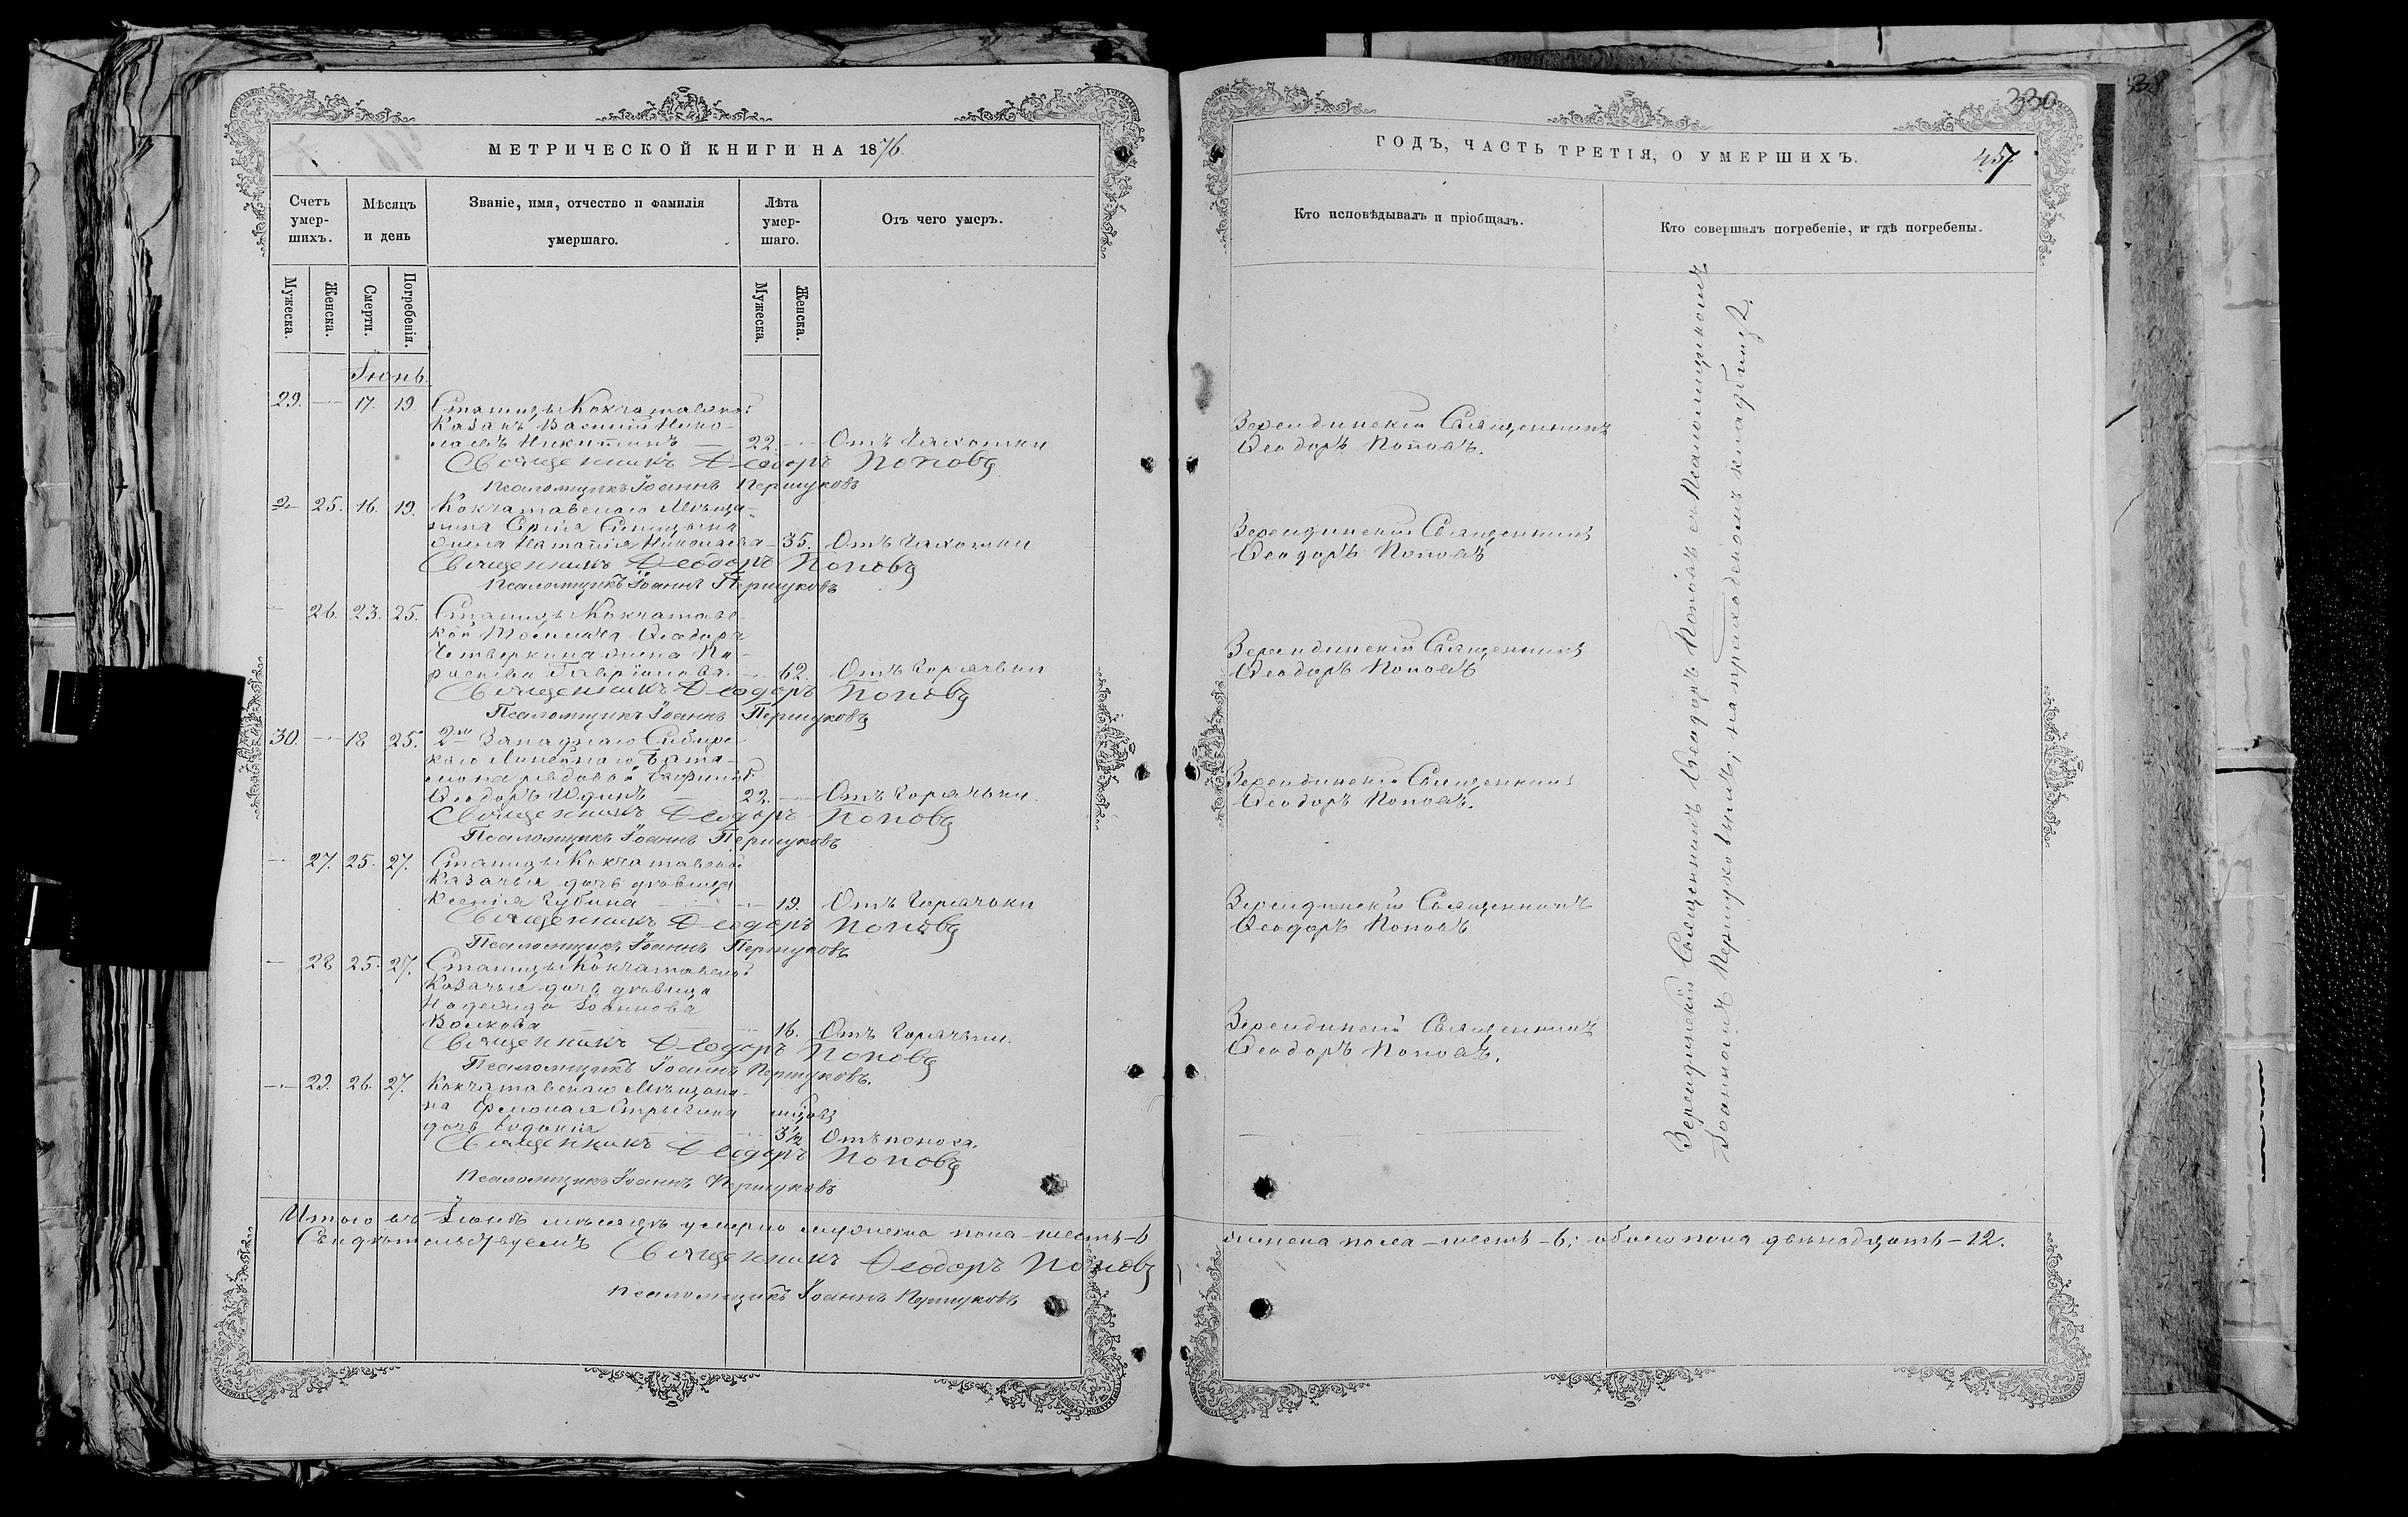 МЕТРИЧЕСКОЙ КНИГИ НА 1876.
Счетъ умер-шихъ.
Мѣсяцъ и день
Званіе, имя, отчество и фамилія умершаго.
Лѣта умер-шаго.
Отъ чего умеръ.
Мужеска.
Женска.
Смерти.
Погребенія.
Мужеска.
Женска.
Іюнь.
29. — 17. 19. Станицы Кокчатавской
Казакъ Василій Нико-
лаевъ Никитинъ — 22. — Отъ Чахотки
Священникъ Ѳеодоръ Поповъ
Псаломщикъ Іоаннъ Першуковъ
25. 16. 19. Кокчатавскаго Мѣща-
нина Сергія Синицына
жена Наталія Николаева — 35. Отъ Чахотки
Священникъ Ѳеодоръ Поповъ
Псаломщикъ Іоаннъ Першуковъ
— 26. 23. 25. Станицы Кокчатавс-
кой Ѳеодора
Четверкина жена Па-
раскева Гавріилова. — 62. Отъ Горячьки
Священникъ Ѳеодоръ Поповъ
Псаломщикъ Іоаннъ Першуковъ
30. — 18 25. 2го Западнаго Сибирс-
каго Линейнаго Бата-
ліона рядовой
Ѳеодоръ Юдинъ — 22. — Отъ Горячьки.
Священникъ Ѳеодоръ Поповъ
Псаломщикъ Іоаннъ Першуковъ
— 27. 25. 27. Станицы Кокчатавской
Казачья дочь дѣвица
Ксенія Губина — 19. Отъ Горячьки
Священникъ Ѳеодоръ Поповъ
Псаломщикъ Іоаннъ Першуковъ
— 28 25. 27. Станицы Кокчатавской
Казачья дочь дѣвица
Надежда Іоаннова
Волкова — 16. Отъ Горячьки.
Священникъ Ѳеодоръ Поповъ
Псаломщикъ Іоаннъ Першуковъ.
— 29. 26. 27. Кокчатавскаго Мѣщани-
на Стрыгина
дочь Евдокія — 3½ Отъ поноса.
Священникъ Ѳеодоръ Поповъ
Псаломщикъ Іоаннъ Першуковъ
Итого въ Іюнѣ мѣсяцѣ умерло мужеска пола — шесть — 6
Свидѣтельствуемъ
Священникъ Ѳеодоръ Поповъ
Псаломщикъ Іоаннъ Першуковъ
330
457
ГОДЪ, ЧАСТЬ ТРЕТІЯ, О УМЕРШИХЪ.
Кто исповѣдывалъ и пріобщалъ.
Кто совершалъ погребеніе, и гдѣ погребены.
Зерендинскій Священникъ
Ѳеодоръ Поповъ.
Зерендинскій Священникъ
Ѳеодоръ Поповъ
Зерендинскій Священникъ
Ѳеодоръ Поповъ
Зерендинскій Священникъ
Ѳеодоръ Поповъ.
Зерендинскій Священникъ
Ѳеодоръ Поповъ
Зерендинскій Священникъ
Ѳеодоръ Поповъ.
Зерендинскій Священникъ Ѳеодоръ Поповъ съ Псаломщикомъ
Іоанномъ Першуковымъ; на приходскомъ кладбищѣ.
женска пола — шесть — 6; обоего пола двѣнадцать — 12.